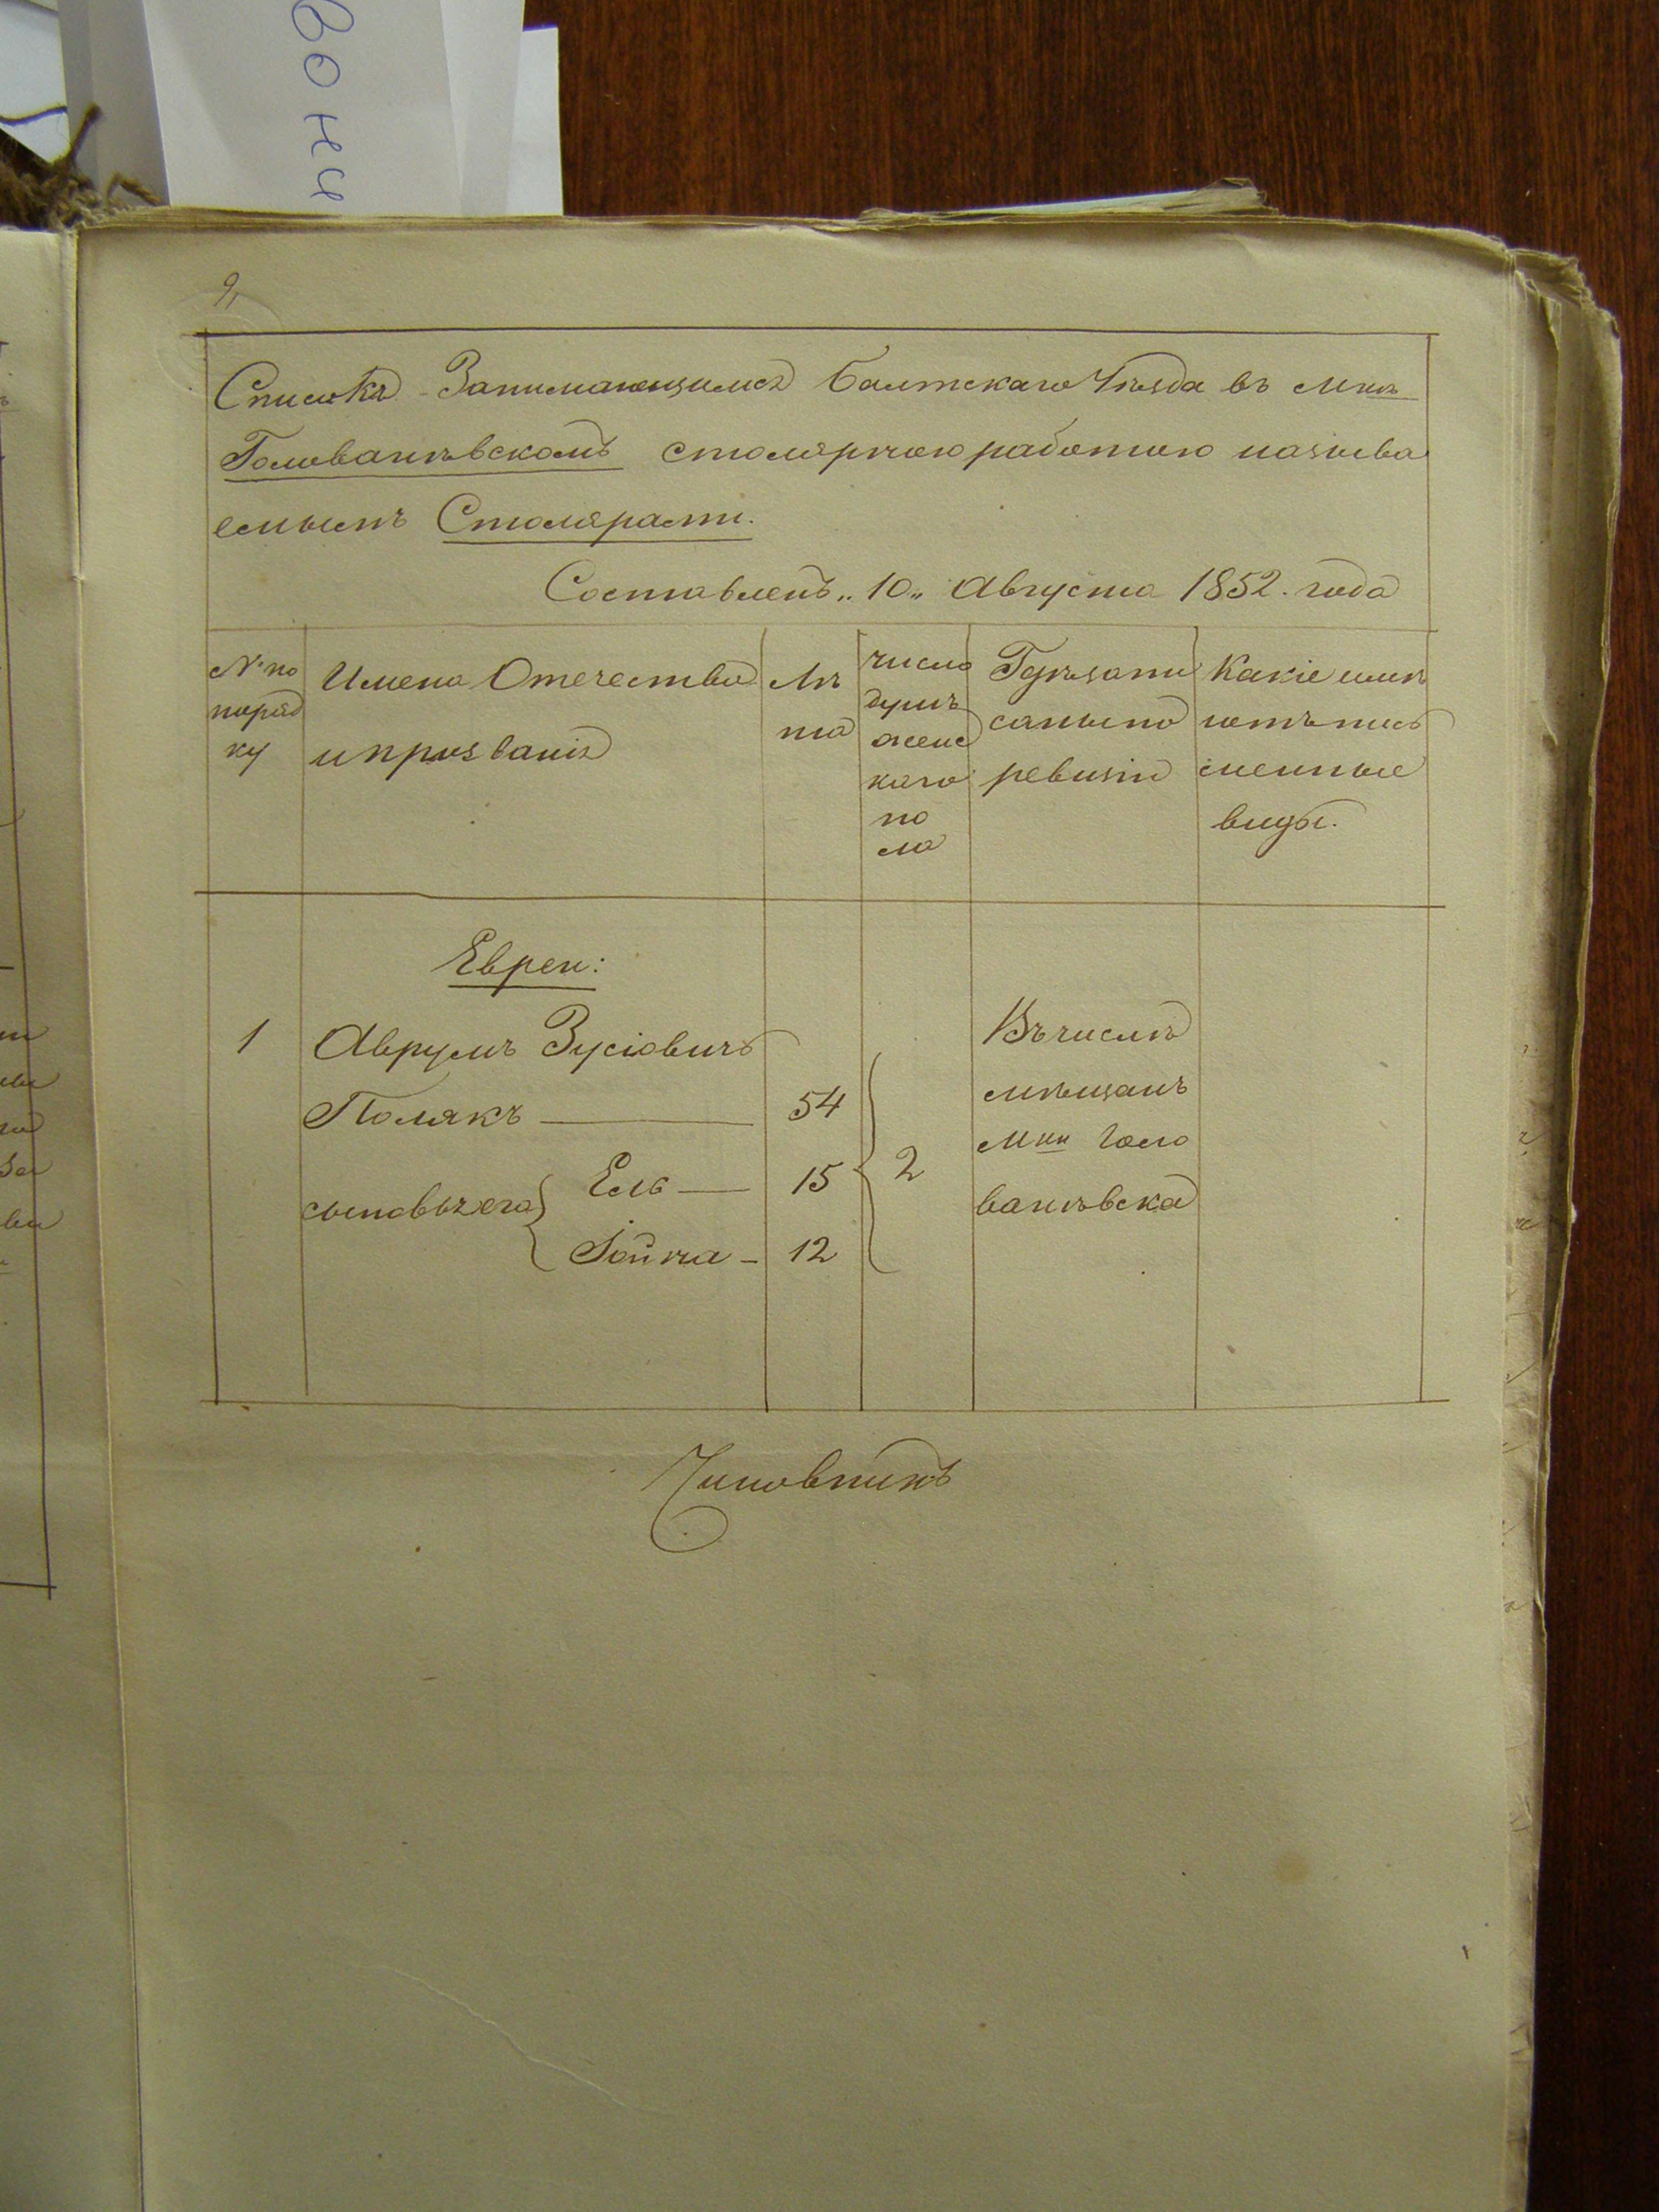 вони
9,
Списокъ Занимающимся Балтскаго Уѣзда въ Мкѣ
Голованѣвскомъ столярною работою называ
емымъ Столярами.
Составленъ „10„ Августа 1852. года
№ по
поряд
ку
Имена Отечество
и прозванія
Лѣ
та
число
душъ
женс
каго
по
ла
Гдѣ запи
саны по
ревизіи
Какіе имѣ
ютъ пись
менные
виды.
Евреи:
1 Аврумъ Зусіовичъ
Полякъ — 54
сыновья его
Ель — 15
Іойна - 12
2
Въ числѣ
мѣщанъ
Мки Голо
ванѣвска
Чиновникъ